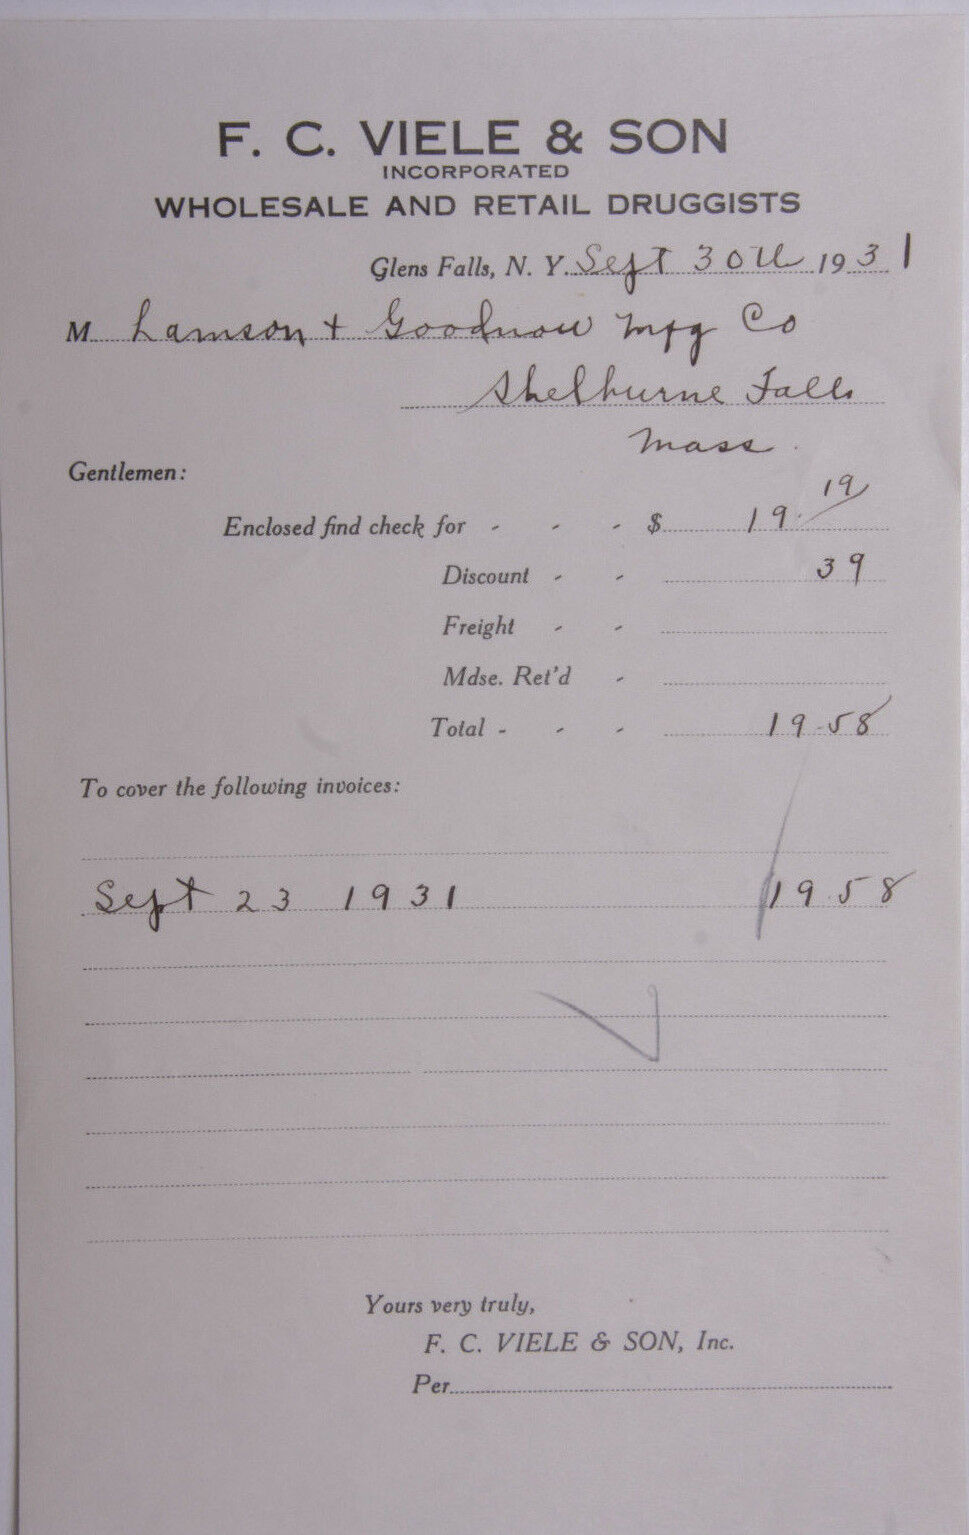 F. C. VIELE & SON
INCORPORATED
WHOLESALE AND RETAIL DRUGGISTS
Glens Falls, N. Y. Sept 30th 1931
M Lamson + Goodnow Mfg Co
Shelburne Falls
Mass.
Gentlemen:
Enclosed find check for - - - $ 19.19
Discount - - 39
Freight - -
Mdse. Ret'd -
Total - - - 19.58
To cover the following invoices:
Sept 23 1931 19.58
Yours very truly,
F. C. VIELE & SON, Inc.
Per